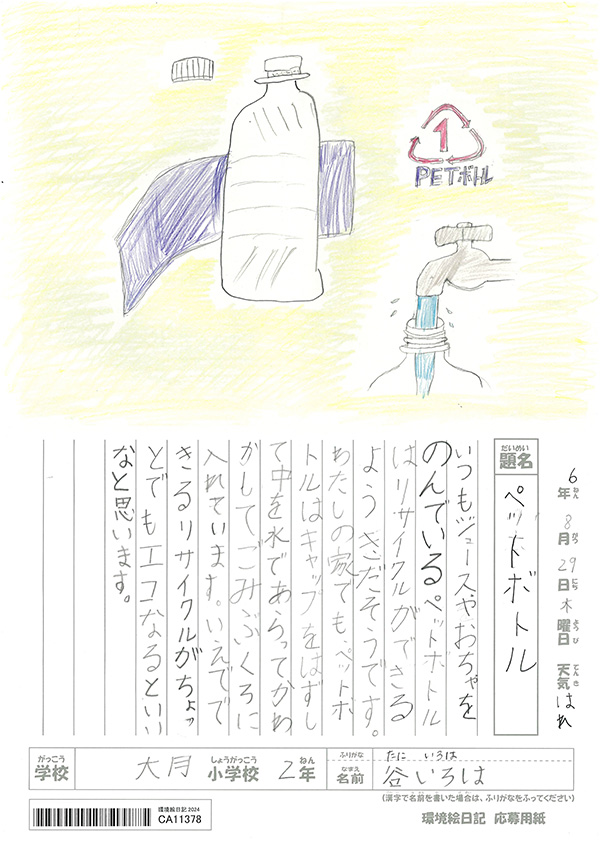 1
PETボトル
6年ねん8月がつ29日にち木曜日ようび天気てんきはれ
だいめい
題名
ペットボトル
いつもジュースやおちゃを
のんでいるペットボトル
はリサイクルができる
ようきだそうです。
わたしの家でも、ペットボ
トルはキャップをはずし
て中を水であらってかわ
かしてごみぶくろに
入れています。いえでで
きるリサイクルがちょっ
とでもエコなるといい
なと思います。
がっこう
学校
大月
しょうがっこう
小学校
2
ねん
年
ふりがな
たに いろは
なまえ
名前
谷いろは
(漢字で名前を書いた場合は、ふりがなをふってください)
環境絵日記2024
CA11378
環境絵日記 応募用紙